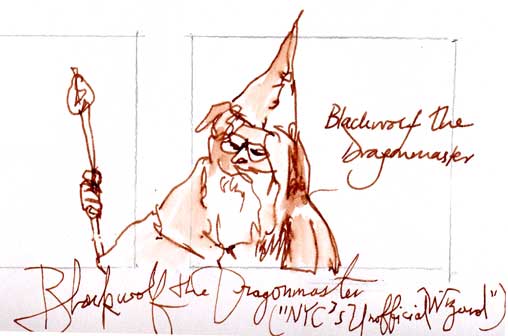 Blackwolf the
Dragonmaster
Blackwolf the Dragonmaster
("NYC's Unofficial Wizard")